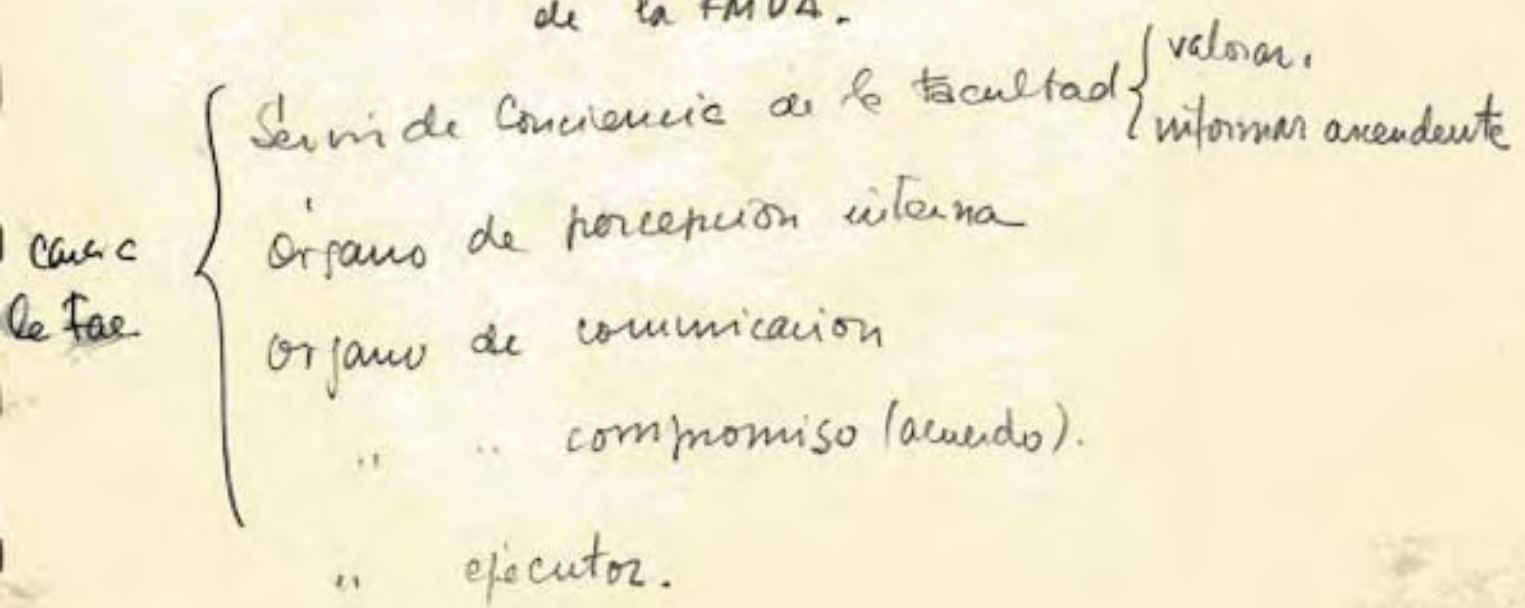 de la FMUA.
Servir de Conciencia de la Facultad { valorar.
informar ascendente
cara a
la Fac.
Órgano de percepción interna
Organo de comunicación
" " compromiso (acuerdo).
" ejecutor.